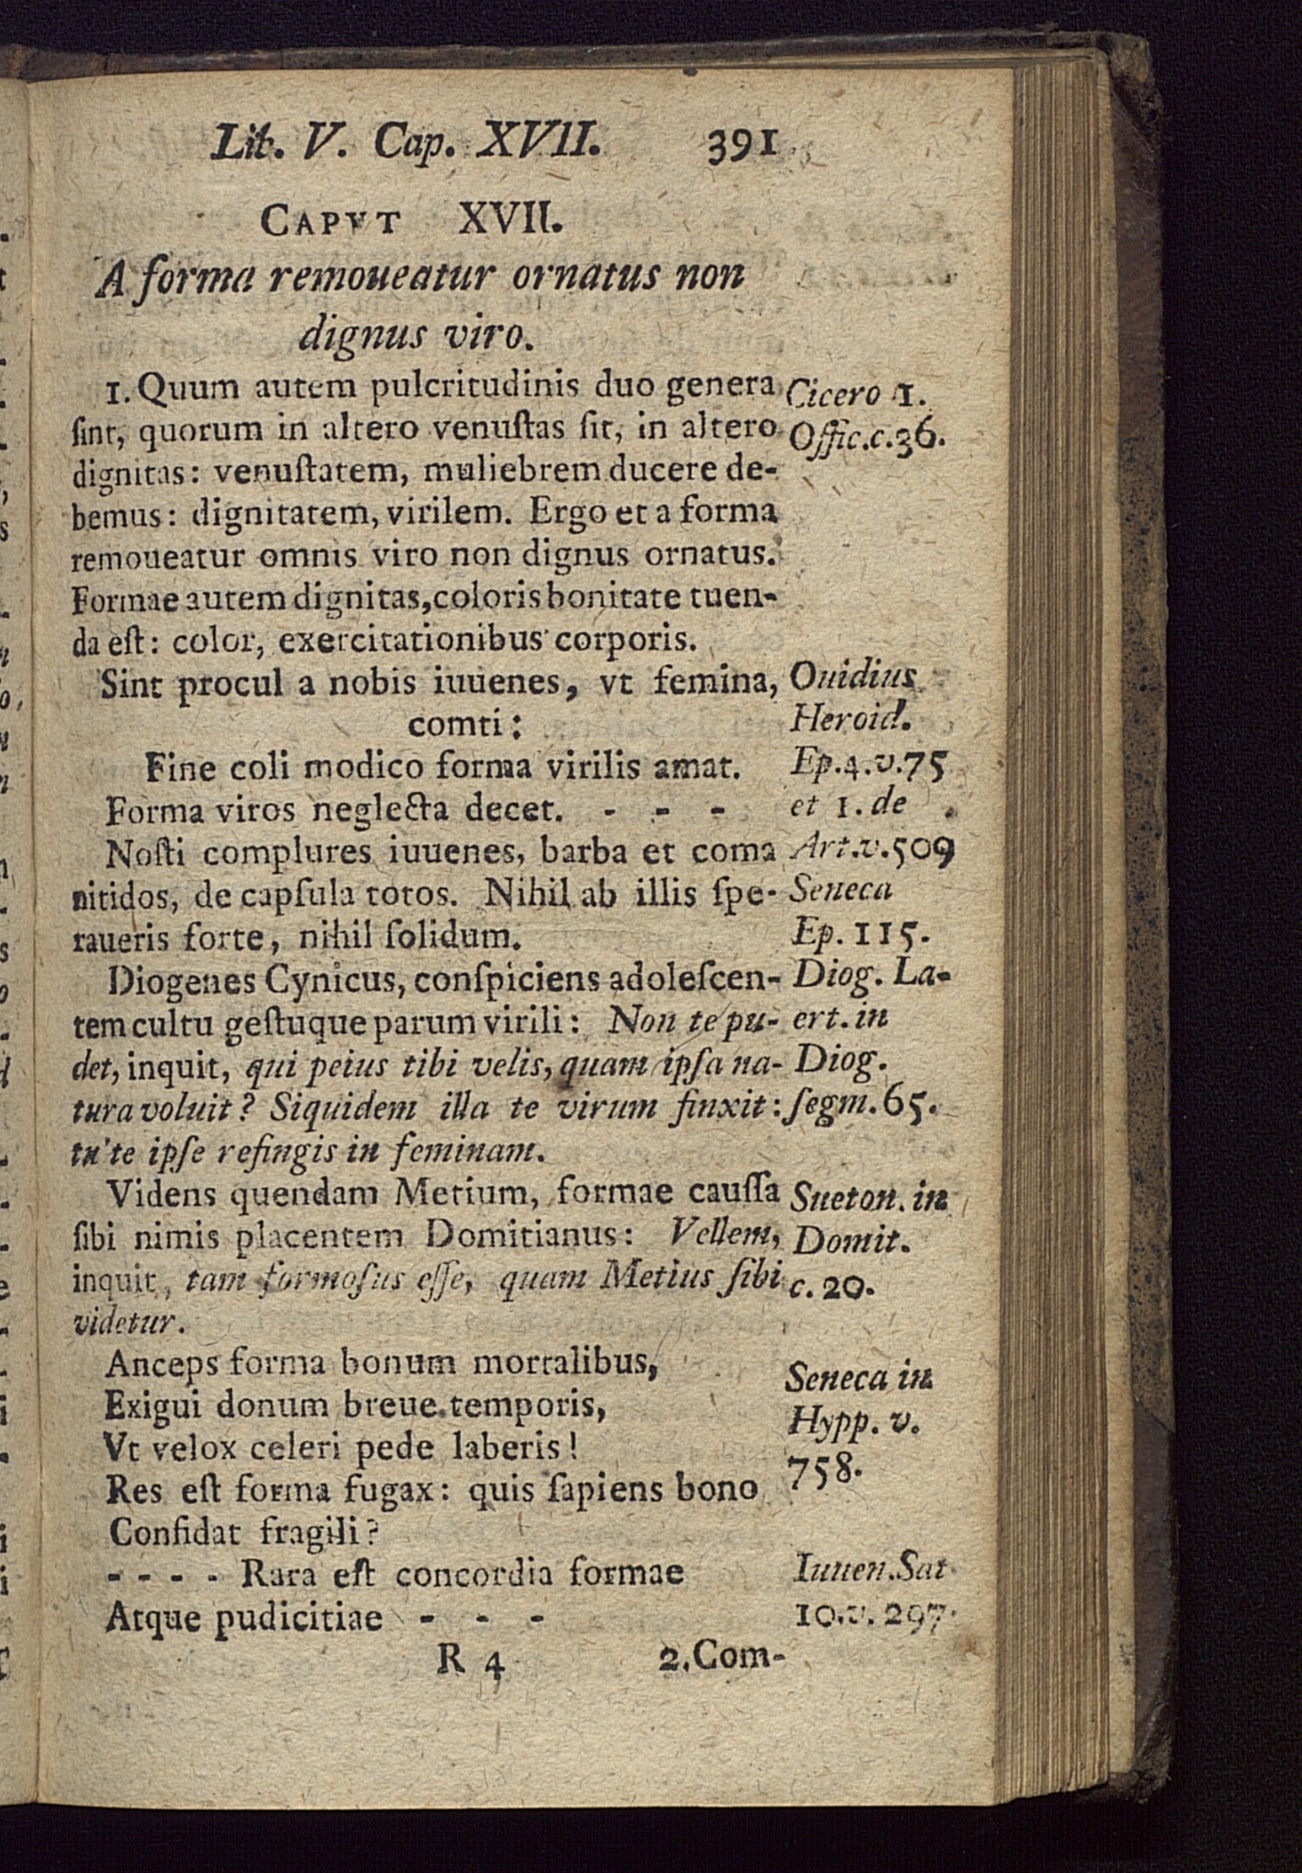 Lib. V. Cap. XVII. 391
CAPVT XVII.
A forma remoueatur ornatus non
dignus viro.
1. Quum autem pulcritudinis duo genera
ſint, quorum in altero venuſtas ſit, in altero
dignitas: venuſtatem, muliebrem ducere de-
bemus: dignitatem, virilem. Ergo et a forma
remoueatur omnis viro non dignus ornatus.
Formae autem dignitas, coloris bonitate tuen-
da eſt: color, exercitationibus corporis.
Cicero 1.
Offic. c. 36.
Sint procul a nobis iuuenes, vt femina,
comti:
Fine coli modico forma virilis amat.
Forma viros neglecta decet. - - -
Ouidius
Heroid.
Ep. 4. v. 75
et 1. de
Art. v. 509
Noſti complures iuuenes, barba et coma
nitidos, de capſula totos. Nihil ab illis ſpe-
raueris forte, nihil ſolidum.
Seneca
Ep. 115.
Diogenes Cynicus, conſpiciens adoleſcen-
tem cultu geſtuque parum virili: Non te pu-
det, inquit, qui peius tibi velis, quam ipſa na-
tura voluit? Siquidem illa te virum finxit:
tu te ipſe refingis in feminam.
Diog. La-
ert. in
Diog.
ſegm. 65.
Videns quendam Metium, formae cauſſa
ſibi nimis placentem Domitianus: Vellem,
inquit, tam formoſus eſſe, quam Metius ſibi
videtur.
Sueton. in
Domit.
c. 20.
Anceps forma bonum mortalibus,
Exigui donum breue temporis,
Vt velox celeri pede laberis!
Res eſt forma fugax: quis ſapiens bono
Confidat fragili?
Seneca in
Hypp. v.
758.
- - - - Rara eſt concordia formae
Atque pudicitiae - - -
Iuuen. Sat
10. v. 297.
R 4 2. Com-